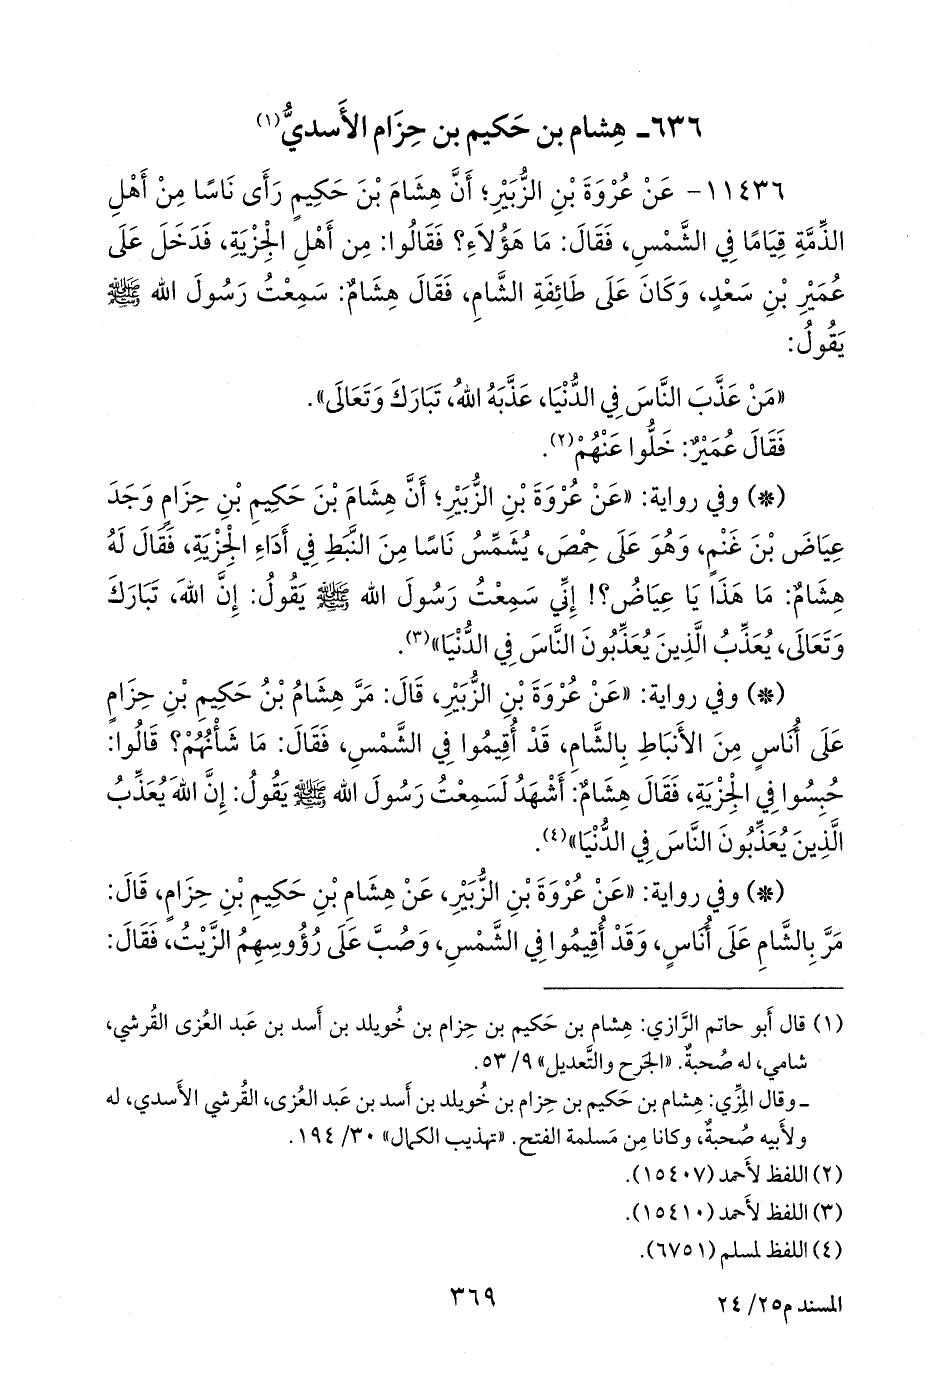 ٦٣٦ـ هِشام بن حَكيم بن حِزَام الأَسديُّ(١)
١١٤٣٦- عَنْ عُرْوَةَ بْنِ الزُّبَيْرِ؛ أَنَّ هِشَامَ بْنَ حَكِيمٍ رَأَى نَاسًا مِنْ أَهْلِ
الذِّمَّةِ قِيَامًا فِي الشَّمْسِ، فَقَالَ: مَا هَؤُلَاءِ؟ فَقَالُوا: مِن أَهْلِ الْجِزْيَةِ، فَدَخَلَ عَلَى
عُمَيْرِ بْنِ سَعْدٍ، وَكَانَ عَلَى طَائِفَةِ الشَّامِ، فَقَالَ هِشَامٌ: سَمِعْتُ رَسُولَ الله ﷺ
يَقُولُ:
«مَنْ عَذَّبَ النَّاسَ فِي الدُّنْيَا، عَذَّبَهُ اللهُ، تَبَارَكَ وَتَعَالَى».
فَقَالَ عُمَيْرٌ: خَلُّوا عَنْهُمْ(٢).
(*) وفي رواية: «عَنْ عُرْوَةَ بْنِ الزُّبَيْرِ؛ أَنَّ هِشَامَ بْنَ حَكِيمِ بْنِ حِزَامٍ وَجَدَ
عِيَاضَ بْنَ غَنْمٍ، وَهُوَ عَلَى حِمْصَ، يُشَمِّسُ نَاسًا مِنَ النَّبَطِ فِي أَدَاءِ الْجِزْيَةِ، فَقَالَ لَهُ
هِشَامٌ: مَا هَذَا يَا عِيَاضُ؟! إِنِّي سَمِعْتُ رَسُولَ الله ﷺ يَقُولُ: إِنَّ اللهَ، تَبَارَكَ
وَتَعَالَى، يُعَذِّبُ الَّذِينَ يُعَذِّبُونَ النَّاسَ فِي الدُّنْيَا»(٣).
(*) وفي رواية: «عَنْ عُرْوَةَ بْنِ الزُّبَيْرِ، قَالَ: مَرَّ هِشَامُ بْنُ حَكِيمِ بْنِ حِزَامٍ
عَلَى أُنَاسٍ مِنَ الأَنْبَاطِ بِالشَّامِ، قَدْ أُقِيمُوا فِي الشَّمْسِ، فَقَالَ: مَا شَأْنُهُمْ؟ قَالُوا:
حُبِسُوا فِي الْجِزْيَةِ، فَقَالَ هِشَامٌ: أَشْهَدُ لَسَمِعْتُ رَسُولَ الله ﷺ يَقُولُ: إِنَّ اللهَ يُعَذِّبُ
الَّذِينَ يُعَذِّبُونَ النَّاسَ فِي الدُّنْيَا»(٤).
(*) وفي رواية: «عَنْ عُرْوَةَ بْنِ الزُّبَيْرِ، عَنْ هِشَامِ بْنِ حَكِيمِ بْنِ حِزَامٍ، قَالَ:
مَرَّ بِالشَّامِ عَلَى أُنَاسٍ، وَقَدْ أُقِيمُوا فِي الشَّمْسِ، وَصُبَّ عَلَى رُؤُوسِهِمُ الزَّيْتُ، فَقَالَ:
(١) قال أَبو حاتم الرَّازي: هِشام بن حَكيم بن حِزام بن خُويلد بن أَسد بن عَبد العُزى القُرشي،
شامي، له صُحبةٌ. «الجَرح والتَّعديل» ٩/ ٥٣.
ـ وقال المِزِّي: هِشام بن حَكيم بن حِزام بن خُويلد بن أَسد بن عَبد العُزى، القُرشي الأَسدي، له
ولأَبيه صُحبةٌ، وكانا مِن مَسلمة الفتح. «تهذيب الكمال» ٣٠/ ١٩٤.
(٢) اللفظ لأَحمد (١٥٤٠٧).
(٣) اللفظ لأَحمد (١٥٤١٠).
(٤) اللفظ لمسلم (٦٧٥١).
المسند م٢٥/ ٢٤
٣٦٩